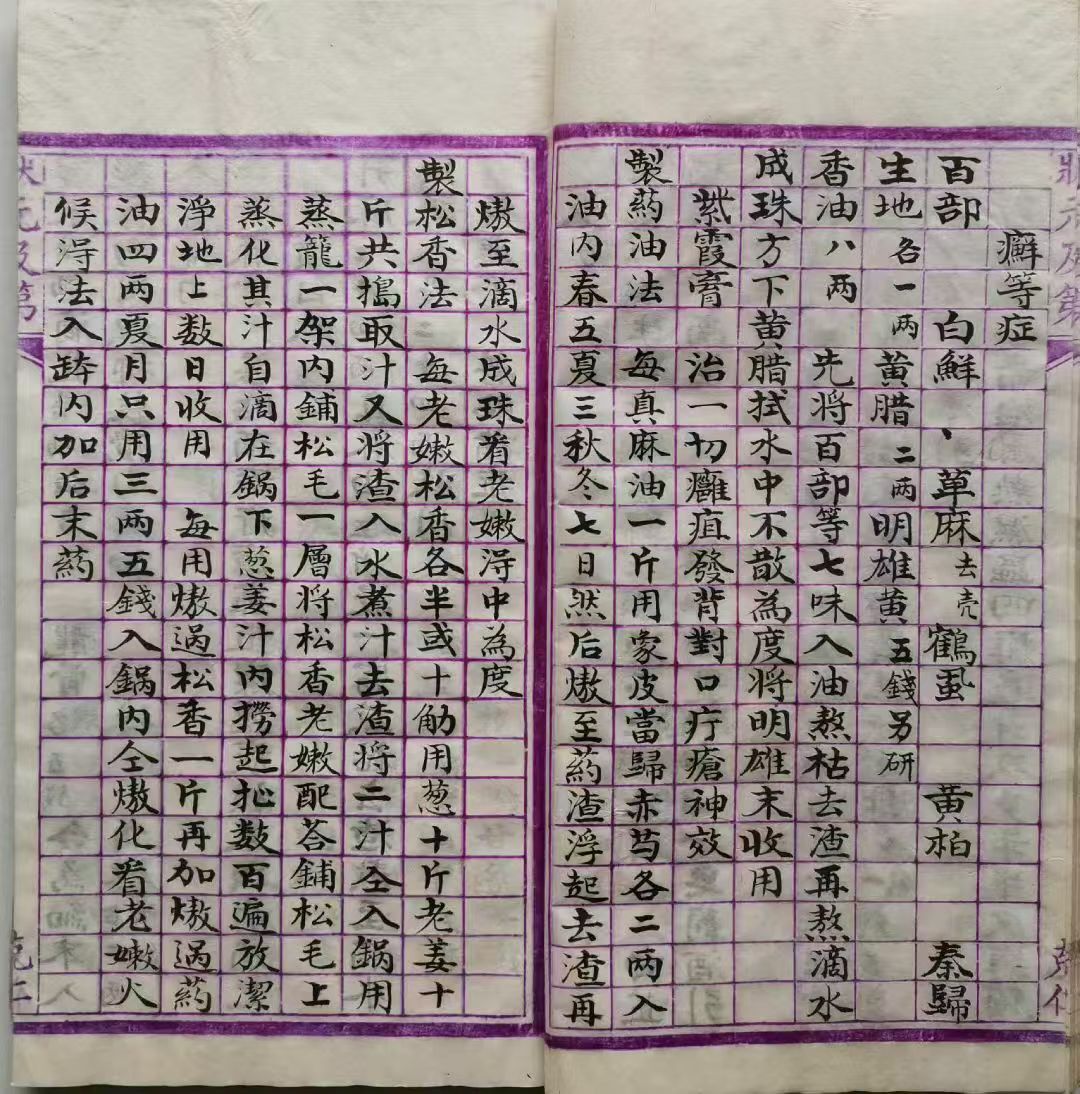 癬等症
百部 白鮮、草麻去壳 鶴虱 黄柏 秦歸
生地各一两 黄腊二两 明雄黄五錢另研
香油八两 先将百部等七味入油熬枯去渣再熬滴水
成珠方下黄腊拭水中不散為度将明雄末收用
紫霞膏 治一切癰疽發背對口疔瘡神效
製药油法 每真麻油一斤用象皮當歸赤芍各二两入
油内春五夏三秋冬七日然后熬至药渣浮起去渣再
熬至滴水成珠看老嫩淂中為度
製松香法 每老嫩松香各半或十觔用葱十斤老姜十
斤共搗取汁又将渣入水煮汁去渣将二汁仝入鍋用
蒸籠一架内鋪松毛一層将松香老嫩配荅鋪松毛上
蒸化其汁自滴在鍋下葱姜汁内撈起扯数百遍放潔
淨地上数日收用 每用熬過松香一斤再加熬過药
油四两夏月只用三两五錢入鍋内仝熬化看老嫩火
候淂法入缽内加后末药
狀元及第
狀元及第